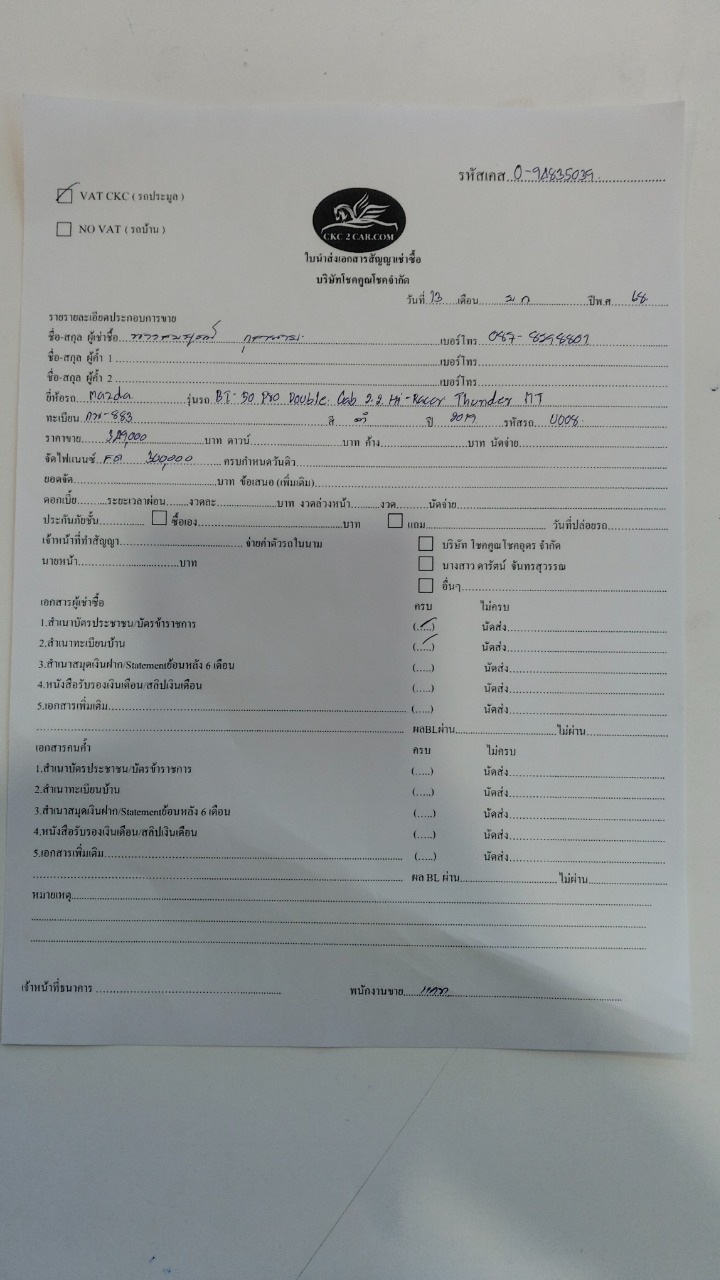 รหัสเคส 0-9A835039
VAT CKC ( รถประมูล )
NO VAT ( รถบ้าน )
CKC 2 CAR.COM
ใบนำส่งเอกสารสัญญาเช่าซื้อ
บริษัทโชคคูณโชคจำกัด
วันที่ 13 เดือน ม.ค ปีพ.ศ 68
รายรายละเอียดประกอบการขาย
ชื่อ-สกุล ผู้เช่าซื้อ เบอร์โทร
ชื่อ-สกุล ผู้ค้ำ 1 เบอร์โทร
ชื่อ-สกุล ผู้ค้ำ 2 เบอร์โทร
ยี่ห้อรถ Mazda รุ่นรถ BT-50 Pro Double Cab 2.2 Hi-Racer Thunder MT
ทะเบียน -883 สี ดำ ปี 2019 รหัสรถ U008
ราคาขาย บาท ดาวน์ บาท ค้าง บาท นัดจ่าย
จัดไฟแนนซ์ 300,000 ครบกำหนดวันดิว
ยอดจัด บาท ข้อเสนอ (เพิ่มเติม)
ดอกเบี้ย ระยะเวลาผ่อน งวดละ บาท งวดล่วงหน้า งวด นัดจ่าย
ประกันภัยชั้น ซื้อเอง บาท แถม วันที่ปล่อยรถ
เจ้าหน้าที่ทำสัญญา จ่ายค่าตัวรถในนาม บริษัท โชคคูณโชคอุดร จำกัด
นายหน้า บาท นางสาว ดารัตน์ จันทรสุวรรณ
อื่นๆ
เอกสารผู้เช่าซื้อ ครบ ไม่ครบ
1.สำเนาบัตรประชาชน/บัตรข้าราชการ (.....) นัดส่ง
2.สำเนาทะเบียนบ้าน (.....) นัดส่ง
3.สำเนาสมุดเงินฝาก/Statementย้อนหลัง 6 เดือน (.....) นัดส่ง
4.หนังสือรับรองเงินเดือน/สลิปเงินเดือน (.....) นัดส่ง
5.เอกสารเพิ่มเติม (.....) นัดส่ง
ผลBLผ่าน ไม่ผ่าน
เอกสารคนค้ำ ครบ ไม่ครบ
1.สำเนาบัตรประชาชน/บัตรข้าราชการ (.....) นัดส่ง
2.สำเนาทะเบียนบ้าน (.....) นัดส่ง
3.สำเนาสมุดเงินฝาก/Statementย้อนหลัง 6 เดือน (.....) นัดส่ง
4.หนังสือรับรองเงินเดือน/สลิปเงินเดือน (.....) นัดส่ง
5.เอกสารเพิ่มเติม (.....) นัดส่ง
ผล BL ผ่าน ไม่ผ่าน
หมายเหตุ
เจ้าหน้าที่ธนาคาร พนักงานขาย